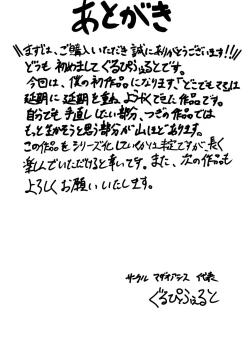 あとがき
まずは、ご購入いただき誠にありがとうございます!!
どうも初めましてぐるぴふぇると です。
今回は、僕の初作品になります!どこでもてるは
延期に延期を重ね、ようやくできた作品です。
自分でも手直ししたい部分、つぎの作品では
もっと生かそうと思う部分が山ほどあります。
この作品をシリーズ化していくかは未定ですが、長く
楽んでいただけると幸いです。また、次の作品も
よろしくお願いいたします。
サークル マダオアシス 代表
ぐるぴふぇると